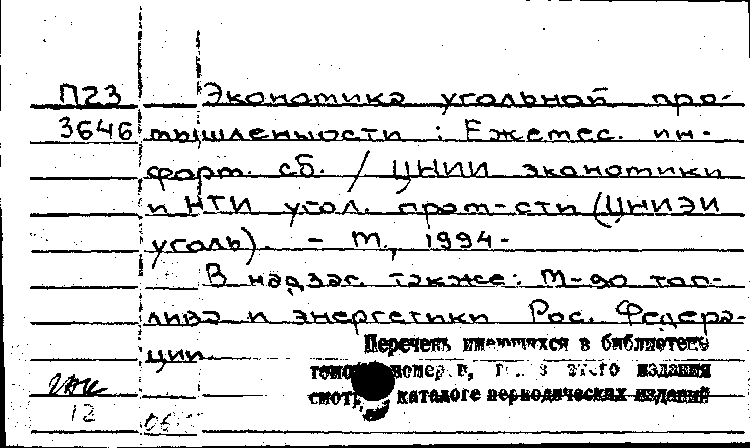 П23 Экономика угольной про-
3646 мышленности : Ежемес. ин-
форм. сб. / ЦНИИ экономики
и НТИ угол. пром-сти (ЦНИЭИ
уголь). - М., 1994-
В надзаг. также: М-во топ-
лива и энергетики Рос. Федера-
ции.
Перечень имеющихся в библиотеке
томов, номеров, этого издания
смотр. каталоге периодических изданий
12